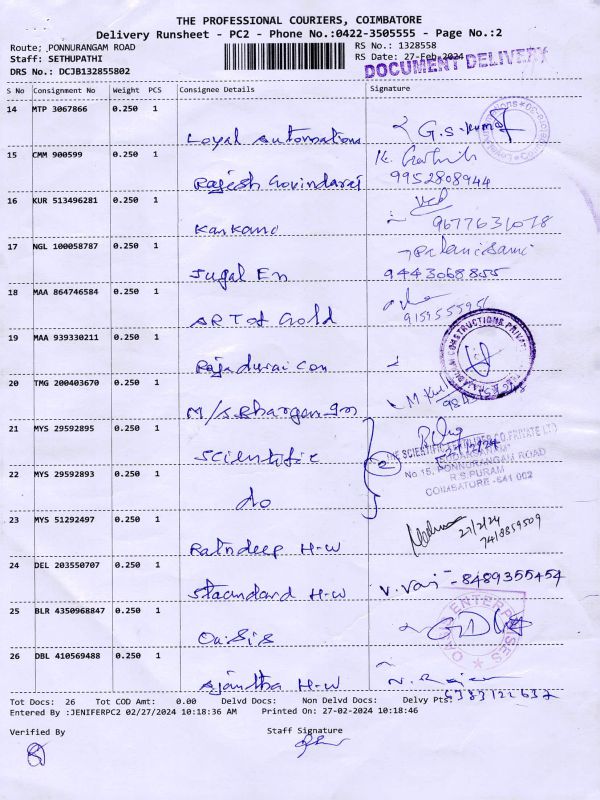 THE PROFESSIONAL COURIERS, COIMBATORE
Delivery Runsheet - PC2 - Phone No.:0422-3505555 - Page No.:2
Route; ,PONNURANGAM ROAD RS No.: 1328558
Staff: SETHUPATHI RS Date: 27-Feb-2024
DOCUMENT DELIVERY
DRS No.: DCJB132855802
S No Consignment No Weight PCS Consignee Details Signature
14 MTP 3067866 0.250 1
Loyal Automations G.S.Kumar
15 CMM 900599 0.250 1
Rajesh Govindaraj 9952808944
16 KUR 513496281 0.250 1
9677631078
17 NGL 100058787 0.250 1
Jugal En 9443068855
18 MAA 864746584 0.250 1
ART of Gold
19 MAA 939330211 0.250 1
Rajadurai Con
20 TMG 200403670 0.250 1
M/s. M
21 MYS 29592895 0.250 1
Scientific 2
No 15, PONNURANGAM ROAD
R.S.PURAM
COIMBATORE -641 002
22 MYS 29592893 0.250 1
do
23 MYS 51292497 0.250 1
27/2/24
7418859509
Ratndeep H-W
24 DEL 203550707 0.250 1
Staandard H-W V. -8489355454
25 BLR 4350968847 0.250 1
Oasis
26 DBL 410569488 0.250 1
Ajantha H-W N. Rajan
6383122637
Tot Docs: 26 Tot COD Amt: 0.00 Delvd Docs: Non Delvd Docs: Delvy Pts:
Entered By :JENIFERPC2 02/27/2024 10:18:36 AM Printed On: 27-02-2024 10:18:46
Verified By Staff Signature